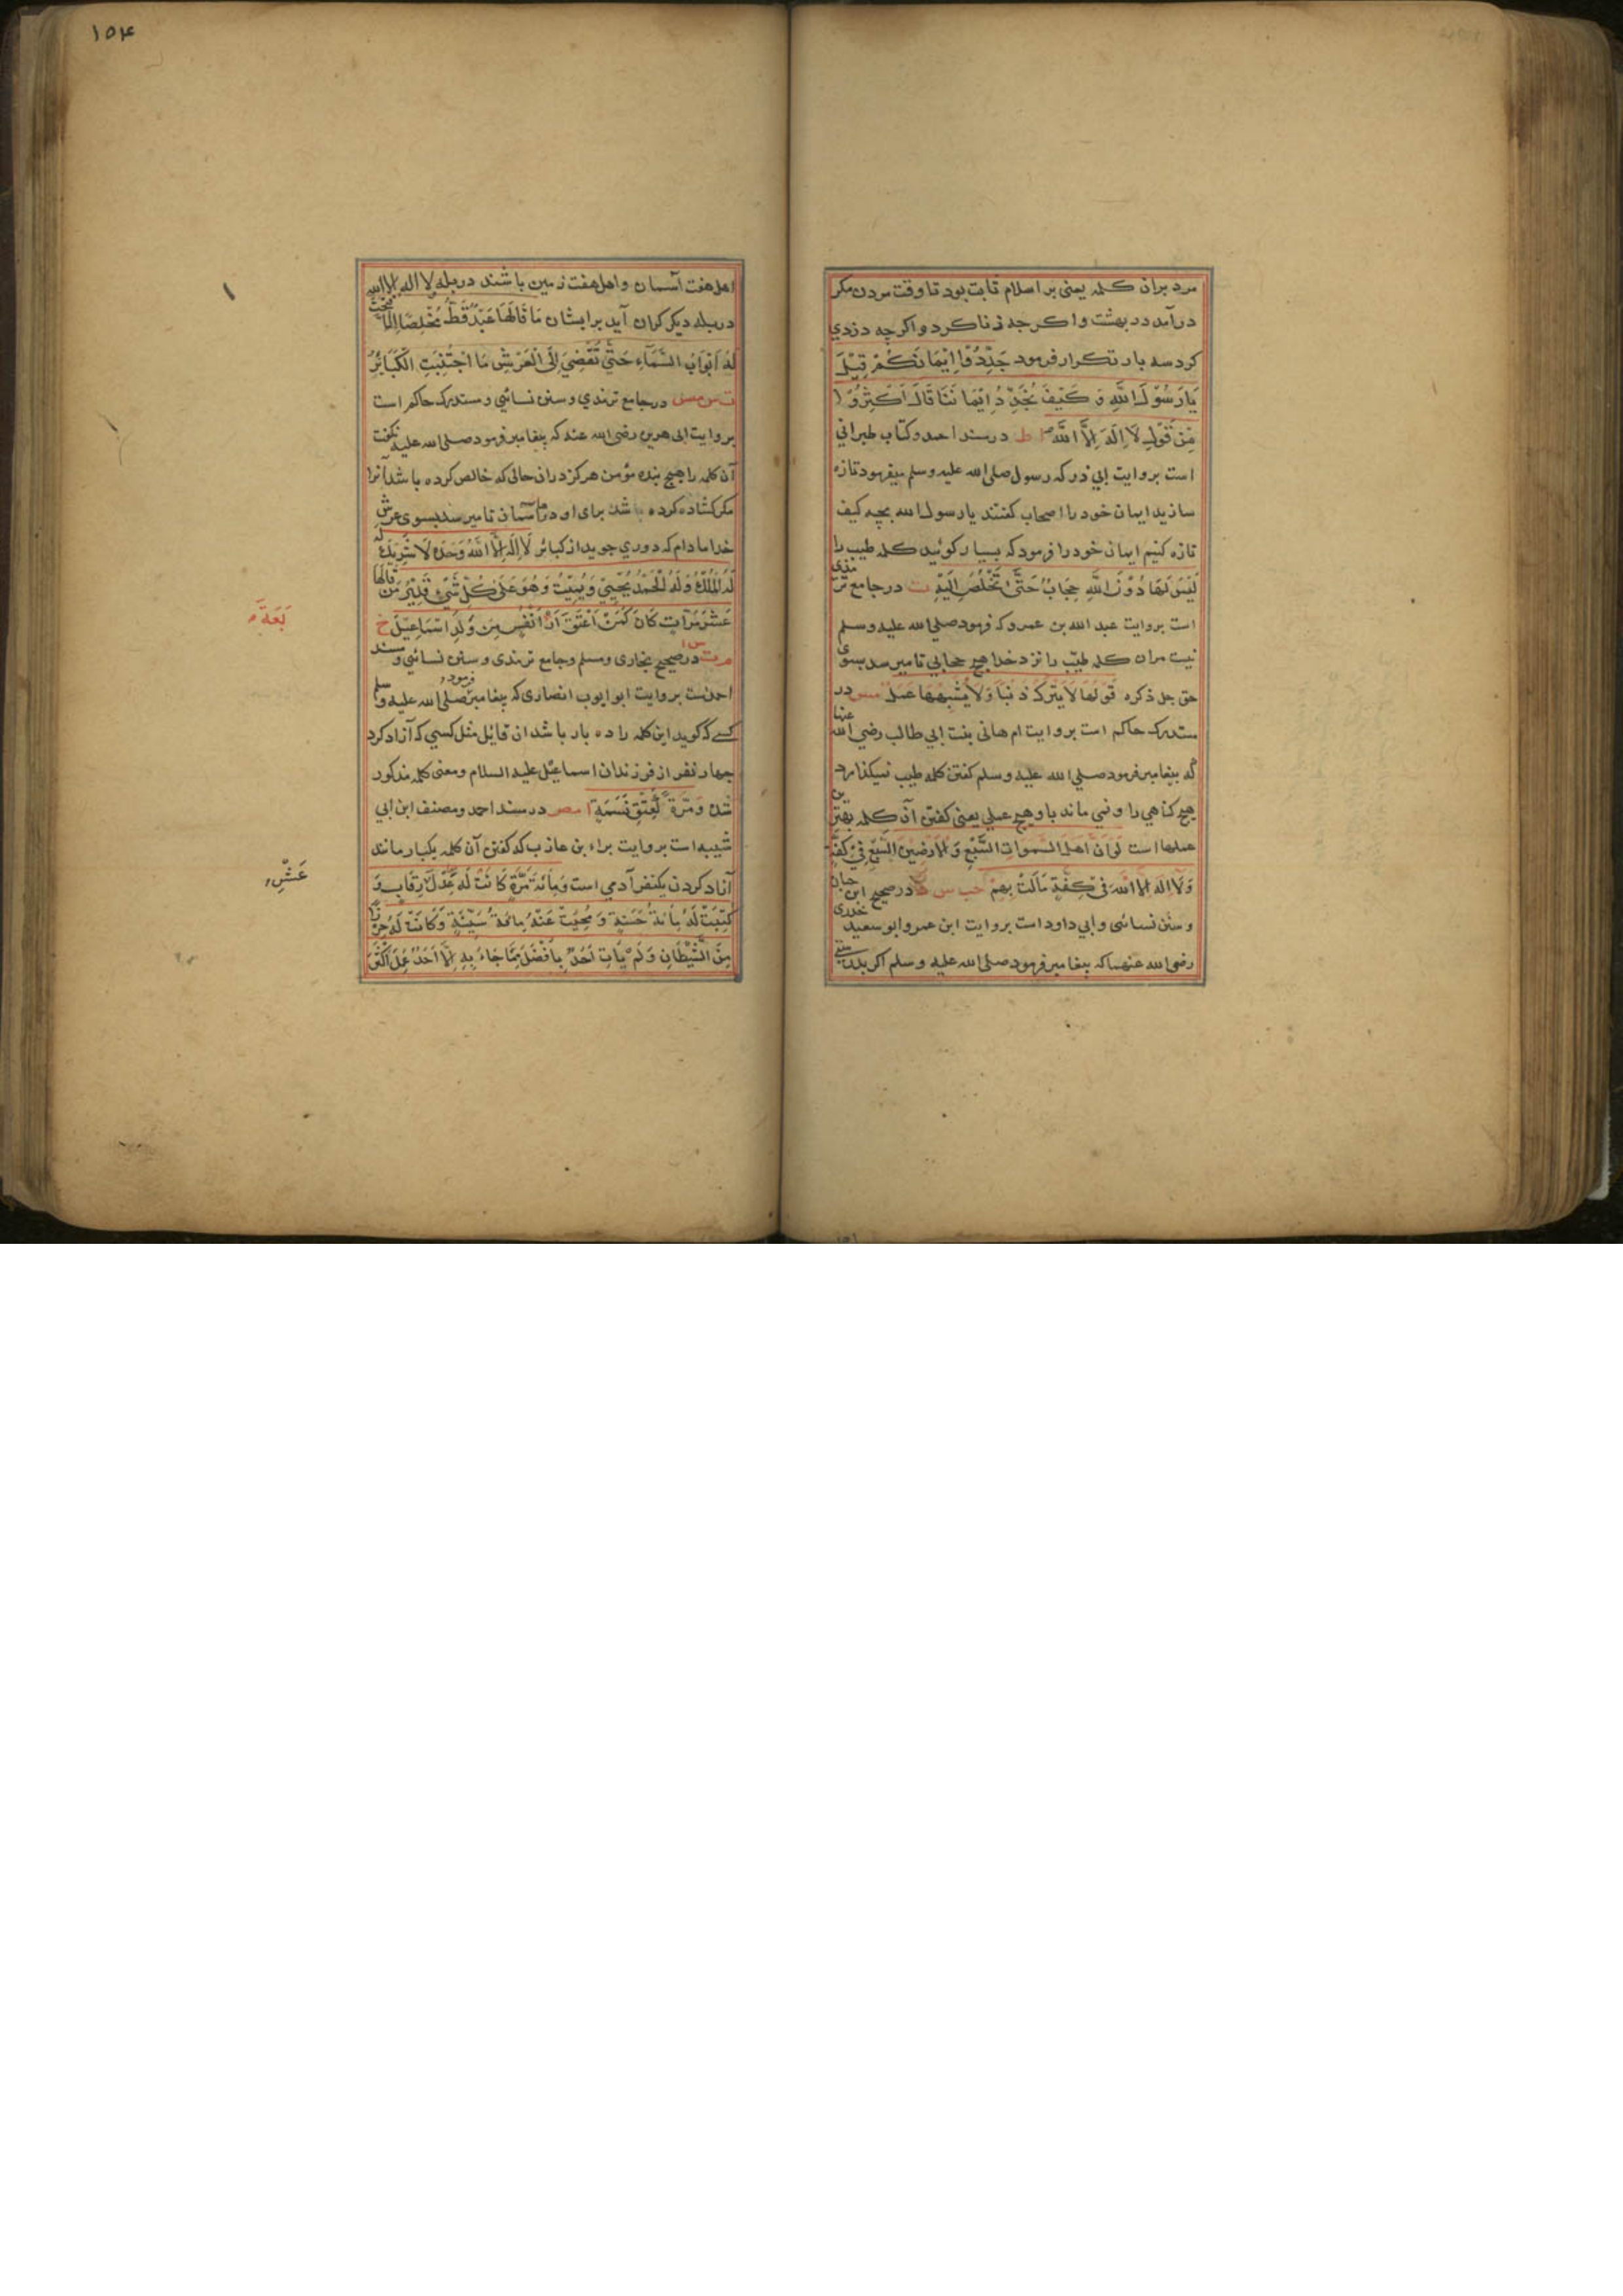 مرد بران کلمه یعنی بر اسلام ثابت بود تا وقت مردن مکر
درآمد در بهشت واکرچه زنا کرد و اکرچه دزدي
کرد سه بار تکرار فرمود جَدِّدُوْا اِيْمَانَكُمْ قِيْلَ
يَارَسُوْلَ اللهِ وَ كَيْفَ نُجَدِّدُ اِيْمَانَنَا قَالَ اَكْثِرُوْا
مِنْ قَوْلِ لَا اِلَهَ اِلَّا اللهُ ا ط در مسند احمد و کتاب طبراني
است بروایت ابي ذر که رسول صلی الله علیه وسلم میفرمود تازه
سازید ایمان خود را اصحاب کفتند یا رسول الله بچه کیف
تازه کنیم ایمان خود را فرمود که بسیار کوئید کلمه طیب را
لَيْسَ لَهَا دُوْنَ اللهِ حِجَابٌ حَتَّى تَخْلُصَ اِلَيْهِ ت در جامع ترمذی
است بروایت عبد الله بن عمرو که فرمود صلی الله علیه وسلم
نیست مران کلمه طیّب را نزد خدا هیچ حجابي تا میرسد بسوی
حق جل ذکره قَوْلُهَا لَا يَتْرُكُ ذَنْبًا وَلَا يُشْبِهُهَا عَمَلٌ مس در
مستدرک حاکم است بروایت ام هانی بنت ابي طالب رضي الله عنها
که پیغامبر فرمود صلي الله علیه وسلم کفتن کلمه طیب نمیکذارد
هیچ کناهي را و نمي ماند باو هیچ عملي یعنی کفتن آن کلمه بهترین
عملها است لَوْ اَنَّ اَهْلَ السَّمَوَاتِ السَّبْعِ وَ الْاَرَضِيْنَ السَّبْعِ فِيْ كِفَّةٍ
وَلَا اِلَهَ اِلَّا اللهُ فِيْ كِفَّةٍ مَالَتْ بِهِمْ حب س در صحیح ابن حبان
و سنن نسائی و ابي داود است بروایت ابن عمر و ابو سعید خدری
رضی الله عنهما که پیغامبر فرمود صلی الله علیه وسلم اکر بدرستی
۱۵۴
اهل هفت آسمان و اهل هفت زمین باشند در پله و لا اله الا الله
در پله دیکر کران آید بر ایشان مَا قَالَهَا عَبْدٌ قَطُّ مُخْلِصًا اِلَّا فُتِحَتْ
لَهُ اَبْوَابُ السَّمَآءِ حَتَّي تُفْضِيَ اِلَى الْعَرْشِ مَا اجْتُنِبَتِ الْكَبَائِرُ
ت س مس در جامع ترمذي و سنن نسائي و مستدرک حاکم است
بروایت ابی هریره رضی الله عنه که پیغامبر فرمود صلی الله علیه نکفت
آن کلمه را هیچ بنده مؤمن هرکز در ان حالی که خالص کرده باشد آنرا
مکر کشاده کرده باشد برای او درهاء آسمان تا میرسد بسوی عرش
خدا ما دام که دوري جوید از کبائر لَا اِلَهَ اِلَّا اللهُ وَحْدَهُ لَا شَرِيْكَ لَهُ
لَهُ الْمُلْكُ وَلَهُ الْحَمْدُ يُحْيِيْ وَيُمِيْتُ وَهُوَ عَلَى كُلِّ شَيْءٍ قَدِيْرٌ مَنْ قَالَهَا
عَشْرَ مَرَّاتٍ كَانَ كَمَنْ اَعْتَقَ اَرْ اَنْفُسٍ مِنْ وَلَدِ اسْمَاعِيْلَ خ
بَعَةَ
م ت س ا در صحیح بخاری و مسلم و جامع ترمذی و سنن نسائي و مسند
احمدست بروایت ابو ایوب انصاری که پیغامبر فرمود صلی الله علیه وسلم
کسے که کوید این کلمه را ده بار باشد ان قایل مثل کسي که آزاد کرد
چهار نفر از فرزندان اسماعیل علیه السلام و معنی کلمه مذکور
شد وَ مَرَّةً كَعِتْقِ نَسَمَةٍ ا مص در مسند احمد و مصنف ابن ابي
شیبه است بروایت براء بن عاذب که کفتن آن کلمه یکبار مانند
آزاد کردن یکنفر آدمي است وَ مِائَةَ مَرَّةٍ كَانَتْ لَهُ عِدْلَ رِقَابٍ وَ
عَشْرِ
كُتِبَتْ لَهُ مِائَةُ حَسَنَةٍ وَ مُحِيَتْ عَنْهُ مِائَةُ سَيِّئَةٍ وَكَانَتْ لَهُ حِرْزًا
مِنَ الشَّيْطَانِ وَلَمْ يَأْتِ اَحَدٌ بِاَفْضَلَ مِمَّا جَاءَ بِهِ اِلَّا اَحَدٌ عَمِلَ اَكْثَرَ